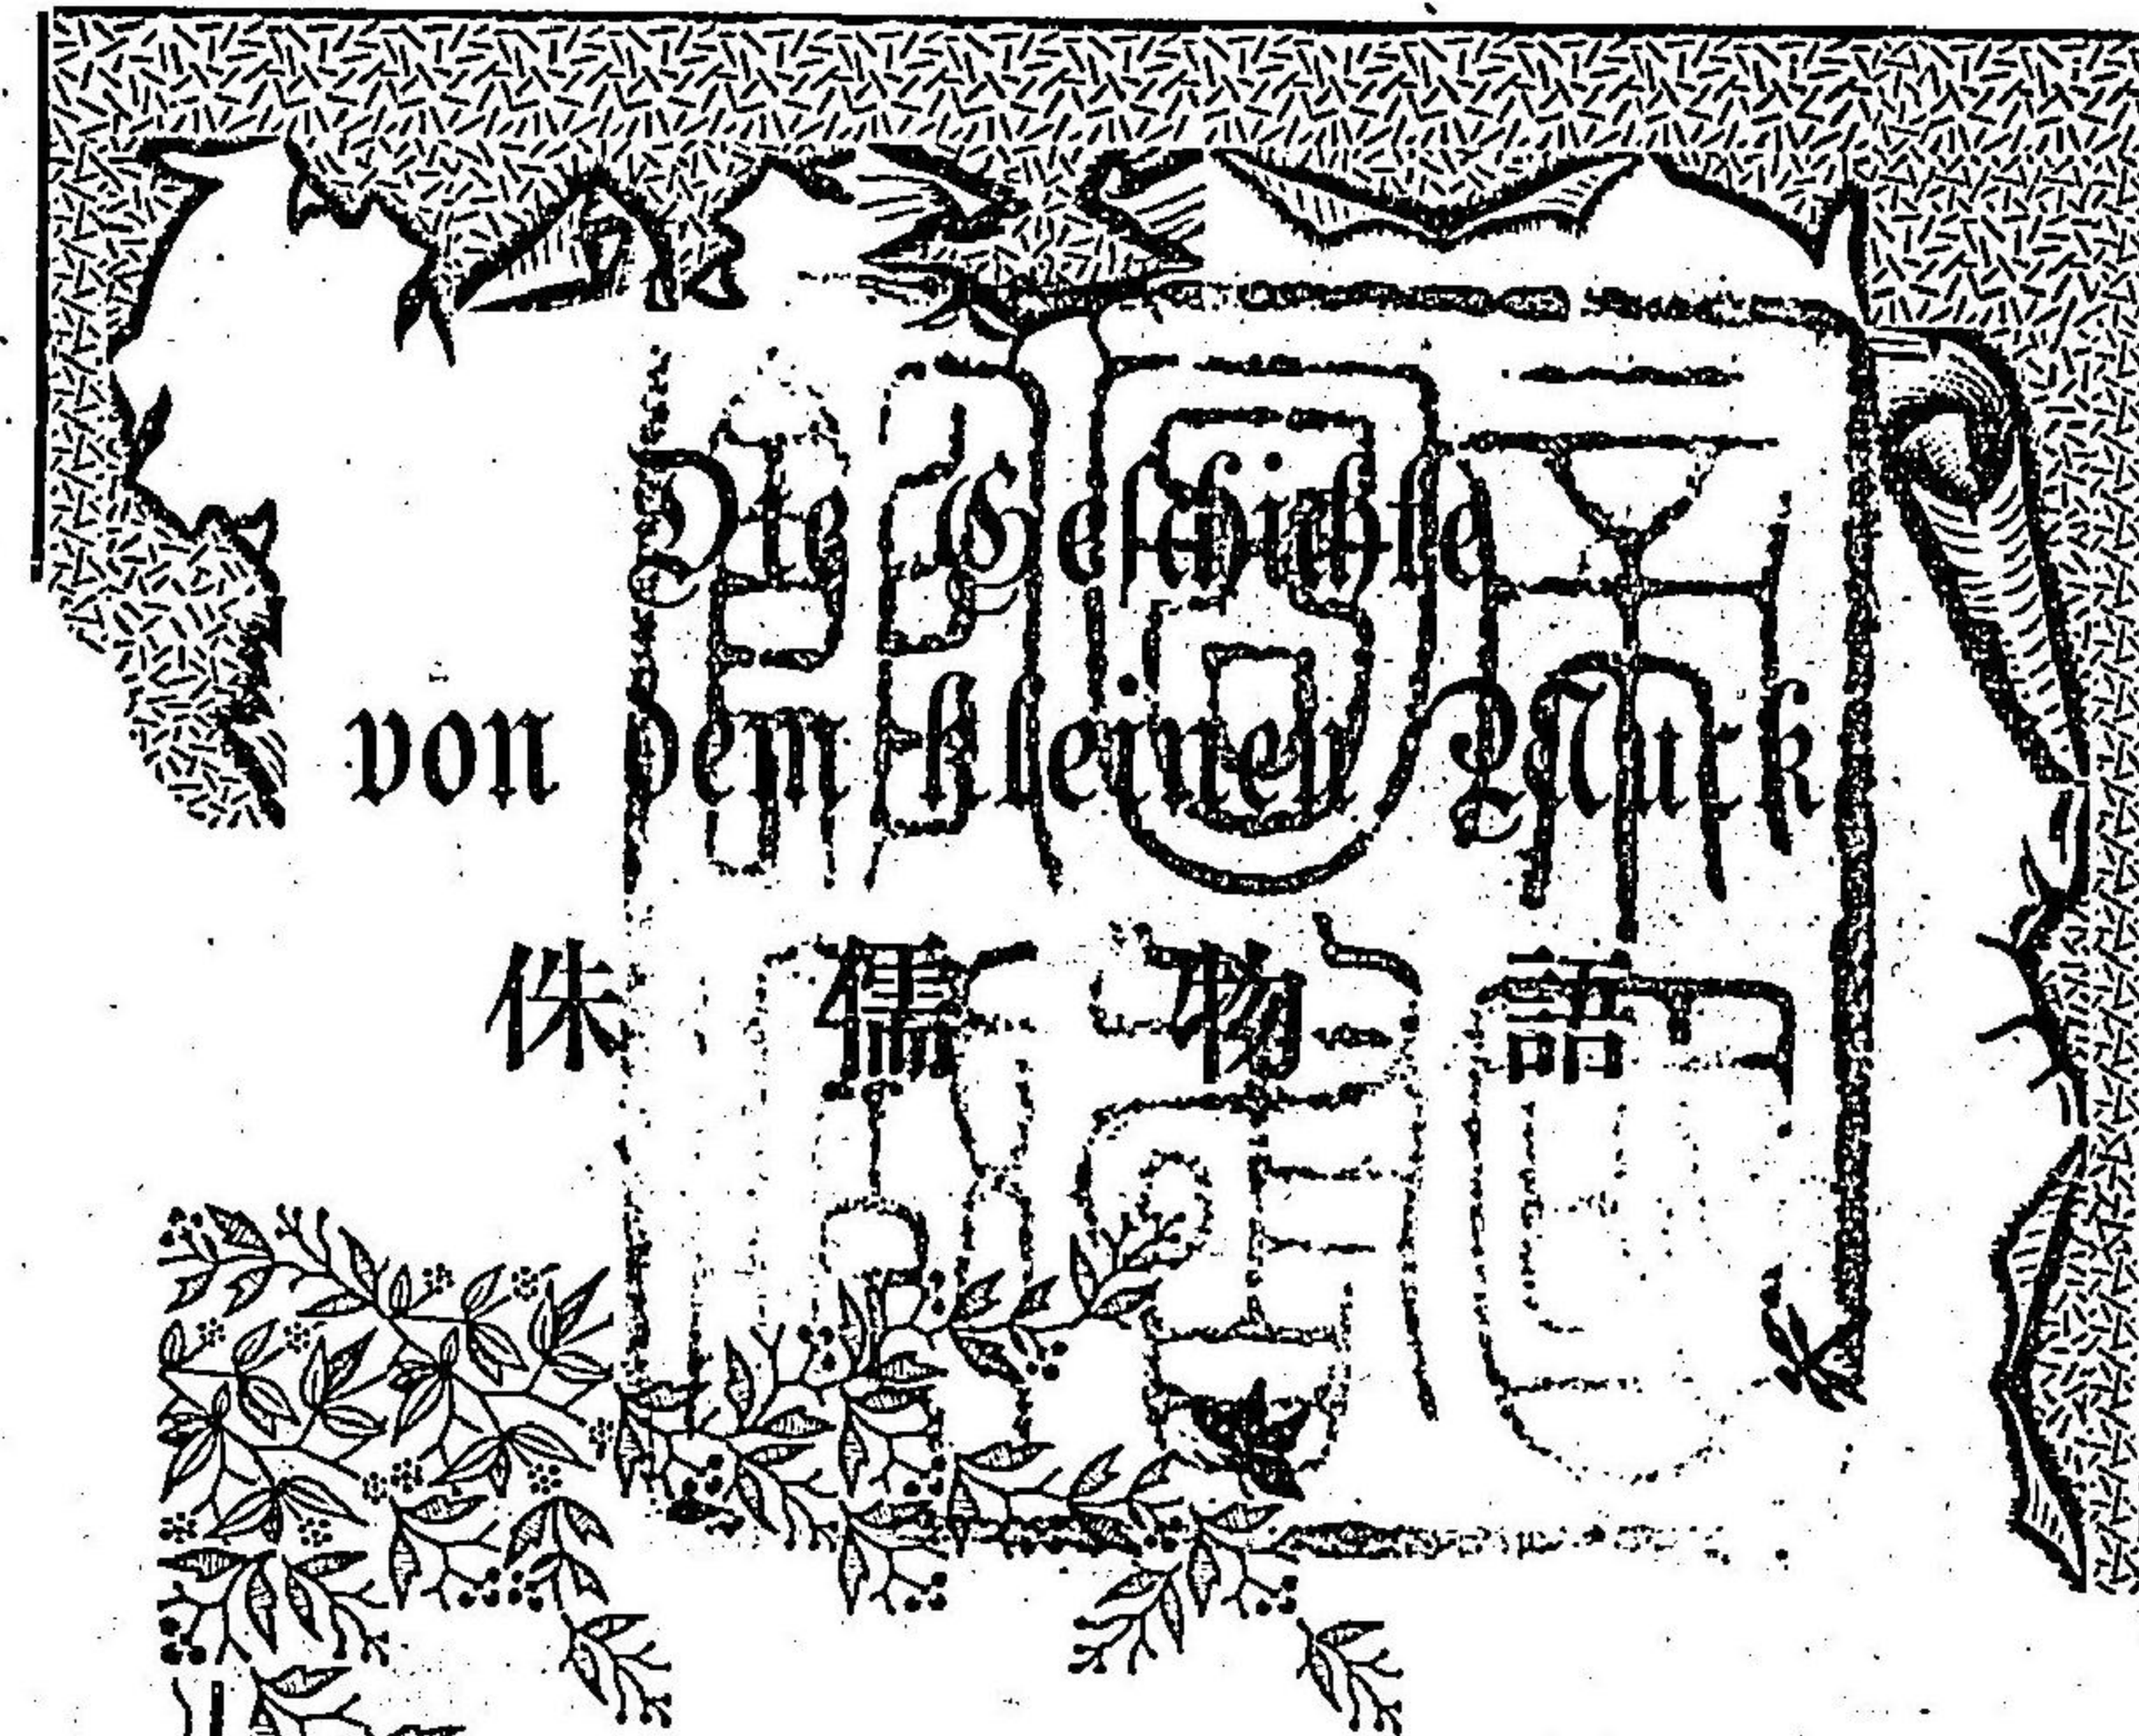 Die Geschichte
von dem kleinen Muck
侏儒物語